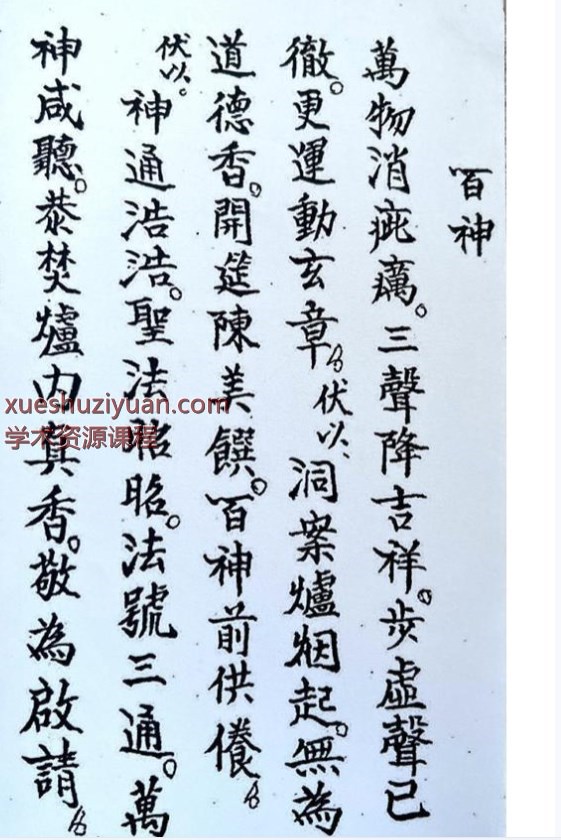 百神
萬物消疵癘。三聲降吉祥。步虛聲已
徹。更運動玄章 伏以、洞案爐烟起。無為
道德香。開筵陳美饌。百神前供養
伏以。神通浩浩。聖法昭昭。法號三通。萬
神咸聽。恭焚爐內真香。敬為啟請
xueshuziyuan.com
学术资源课程